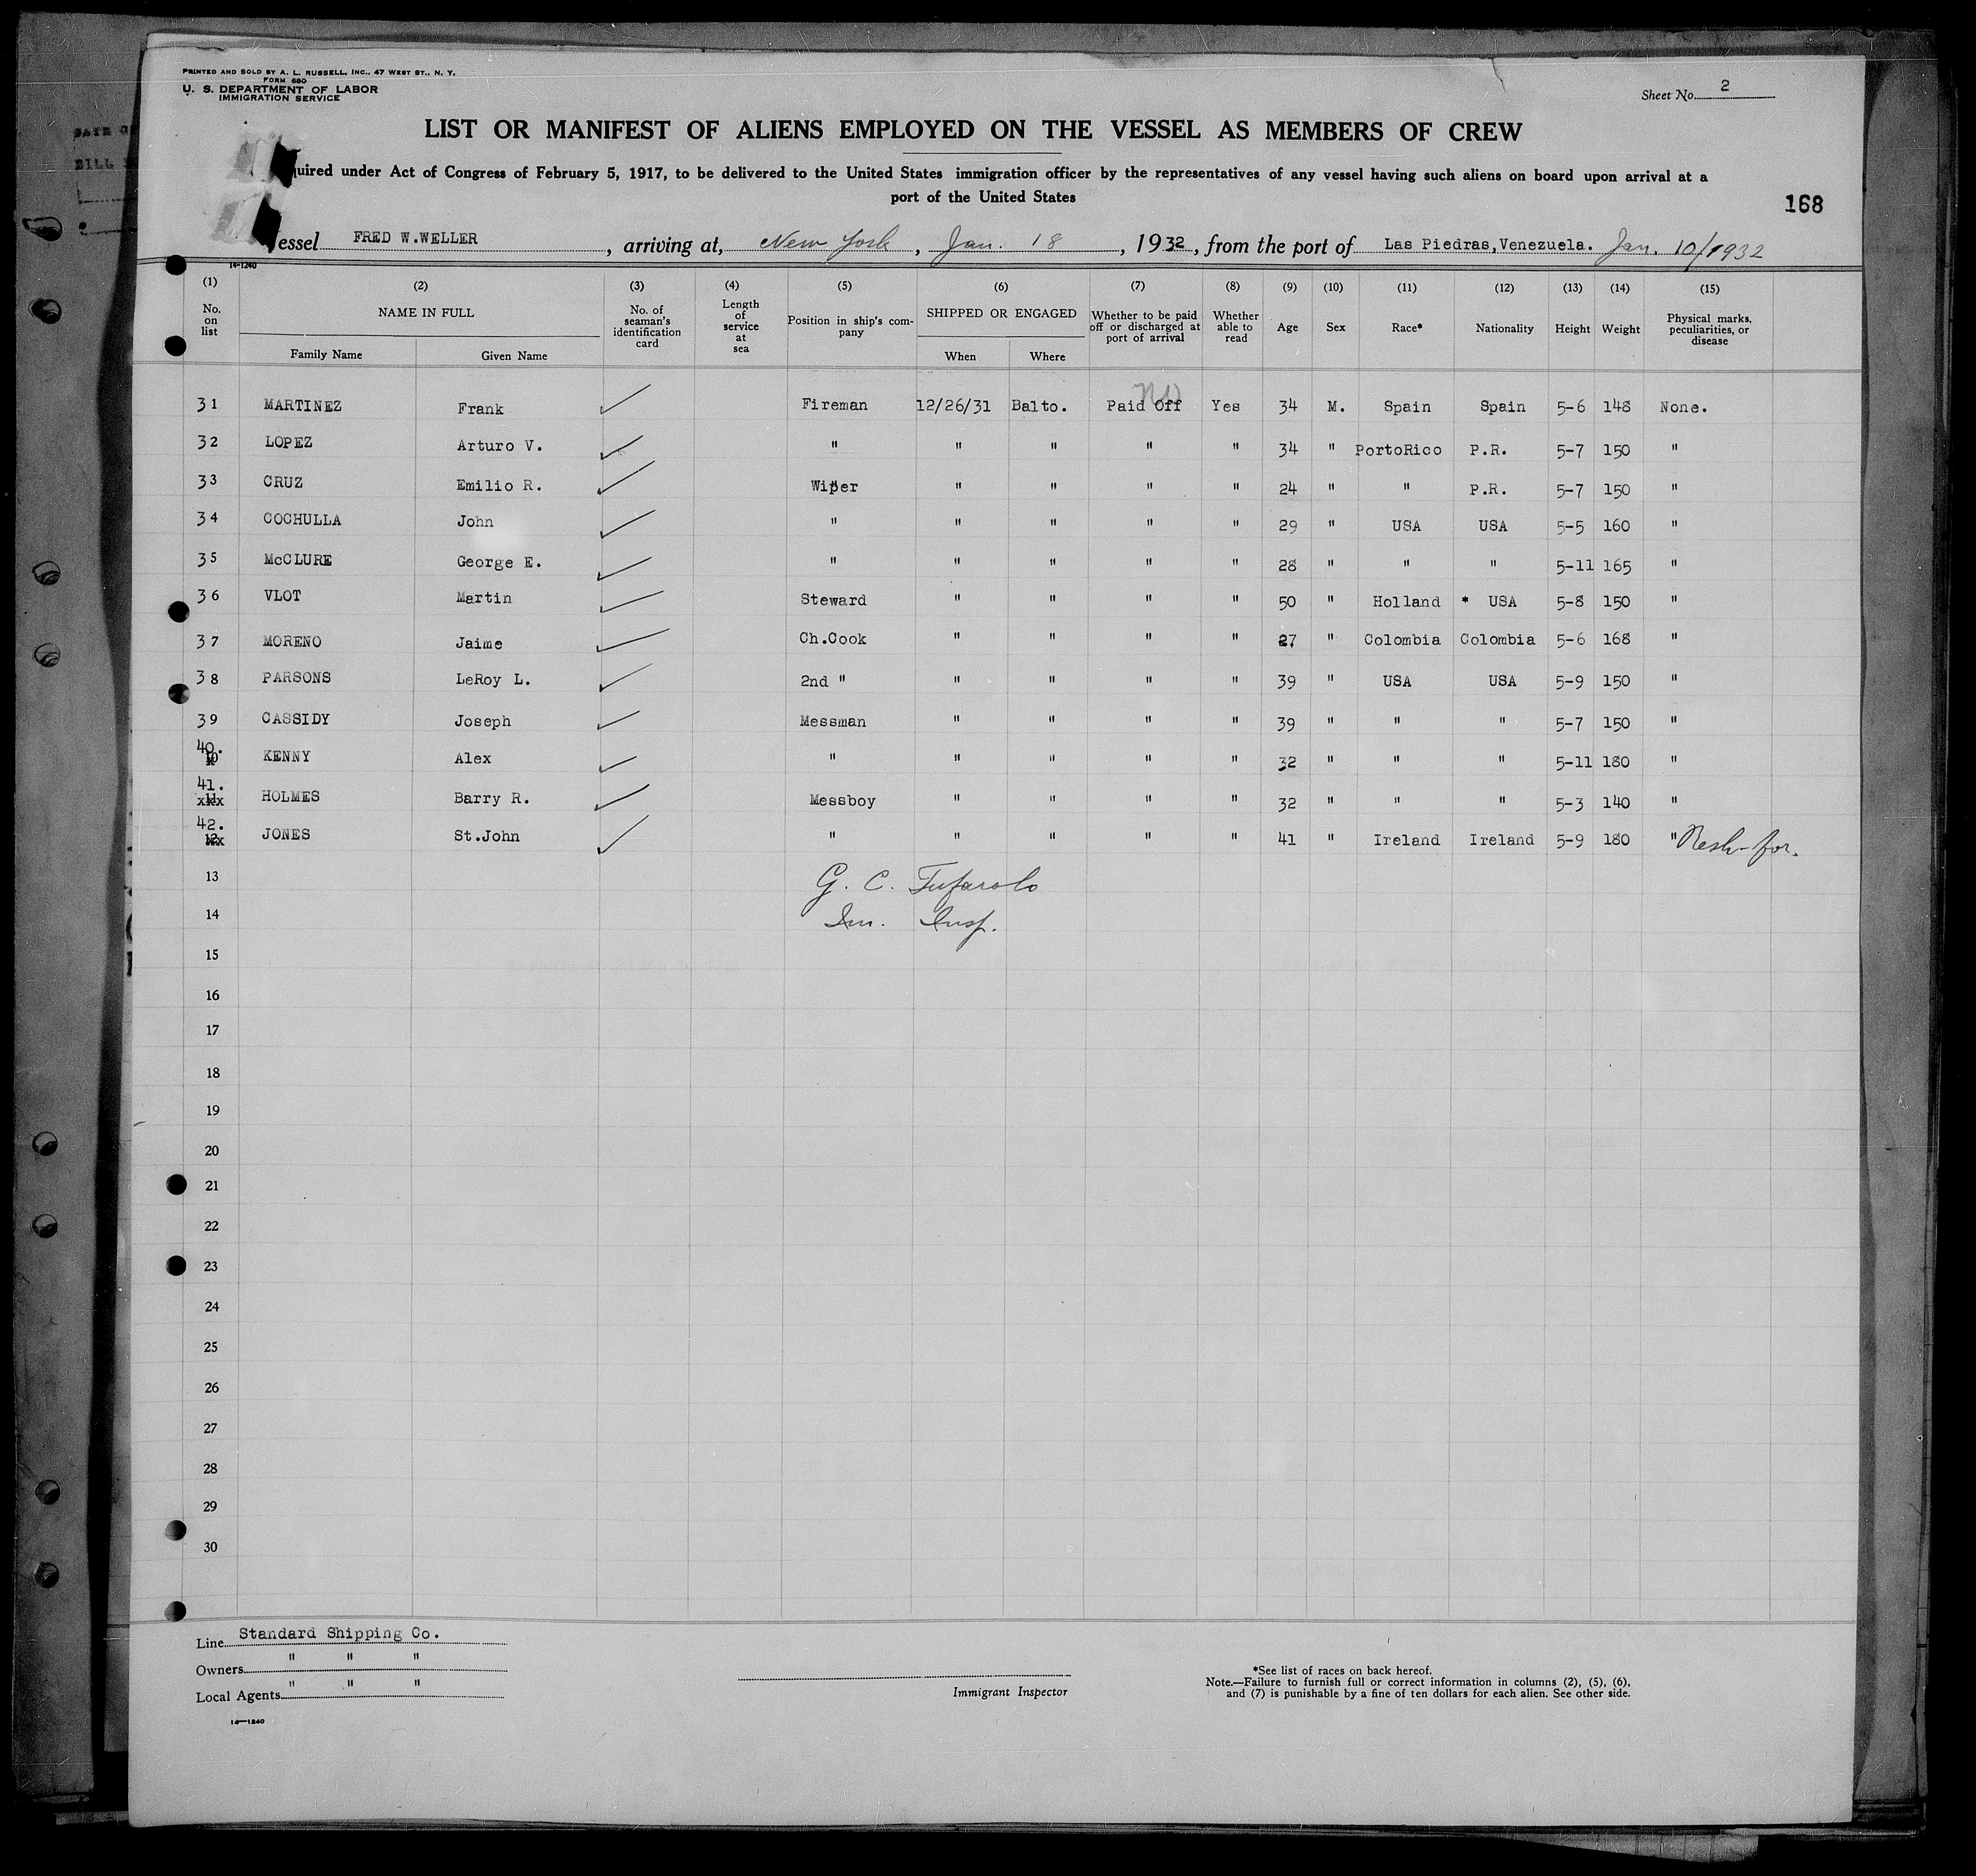 PRINTED AND SOLD BY A. L. RUSSELL, INC., 47 WEST ST., N. Y.
FORM 680
U. S. DEPARTMENT OF LABOR
IMMIGRATION SERVICE
Sheet No. 2
LIST OR MANIFEST OF ALIENS EMPLOYED ON THE VESSEL AS MEMBERS OF CREW
uired under Act of Congress of February 5, 1917, to be delivered to the United States immigration officer by the representatives of any vessel having such aliens on board upon arrival at a
port of the United States
168
essel FRED W.WELLER, arriving at, New York, Jan. 18, 1932, from the port of Las Piedras,Venezuela. Jan. 10/1932
14-1240
(1) (2) (3) (4) (5) (6) (7) (8) (9) (10) (11) (12) (13) (14) (15)
No. on list NAME IN FULL Family Name Given Name No. of seaman's identification card Length of service at sea Position in ship's company SHIPPED OR ENGAGED When Where Whether to be paid off or discharged at port of arrival Whether able to read Age Sex Race* Nationality Height Weight Physical marks, peculiarities, or disease
No
31 MARTINEZ Frank ✓ Fireman 12/26/31 Balto. Paid Off Yes 34 M. Spain Spain 5-6 148 None.
32 LOPEZ Arturo V. ✓ " " " " " 34 " PortoRico P.R. 5-7 150 "
33 CRUZ Emilio R. ✓ Wiper " " " " 24 " " P.R. 5-7 150 "
34 COCHULLA John ✓ " " " " " 29 " USA USA 5-5 160 "
35 McCLURE George E. ✓ " " " " " 28 " " " 5-11 165 "
36 VLOT Martin ✓ Steward " " " " 50 " Holland * USA 5-8 150 "
37 MORENO Jaime ✓ Ch.Cook " " " " 27 " Colombia Colombia 5-6 168 "
38 PARSONS LeRoy L. ✓ 2nd " " " " " 39 " USA USA 5-9 150 "
39 CASSIDY Joseph ✓ Messman " " " " 39 " " " 5-7 150 "
40. 10 KENNY Alex ✓ " " " " " 32 " " " 5-11 180 "
41. 11 HOLMES Barry R. ✓ Messboy " " " " 32 " " " 5-3 140 "
42. 12 JONES St.John ✓ " " " " " 41 " Ireland Ireland 5-9 180 "
13 G. C. Tufarolo
14 Im. Insp.
15
16
17
18
19
20
21
22
23
24
25
26
27
28
29
30
Line Standard Shipping Co.
Owners " " "
Local Agents " " "
14—1240
Immigrant Inspector
*See list of races on back hereof.
Note.—Failure to furnish full or correct information in columns (2), (5), (6),
and (7) is punishable by a fine of ten dollars for each alien. See other side.